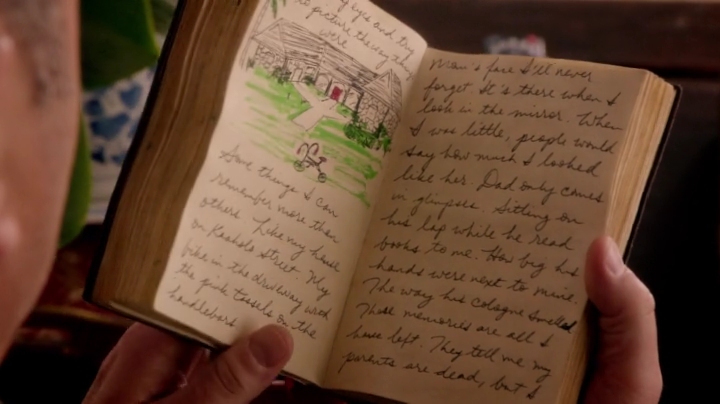 my eyes and try
to picture the way they
were
Some things I can
remember more than
others. Like my house
on Kaahola Street. My
bike in the driveway with
the pink tassels on the
handlebars
Mom's face I'll never
forget. It's there when I
look in the mirror. When
I was little, people would
say how much I looked
like her. Dad only comes
in glimpses. Sitting on
his lap while he read
books to me. How big his
hands were next to mine.
The way his cologne smelled.
Those memories are all I
have left. They tell me my
parents are dead, but I